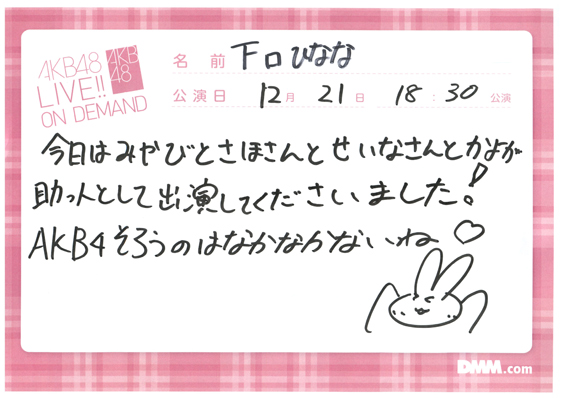 AKB48
LIVE!!
ON DEMAND
AKB
48
名前 下口ひなな
公演日 12月 21日 18:30 公演
今日はみやびとさほさんとせいなさんとかよが
助っ人として出演してくださいました!
AKB4そろうのはなかなかないね♡
DMM.com